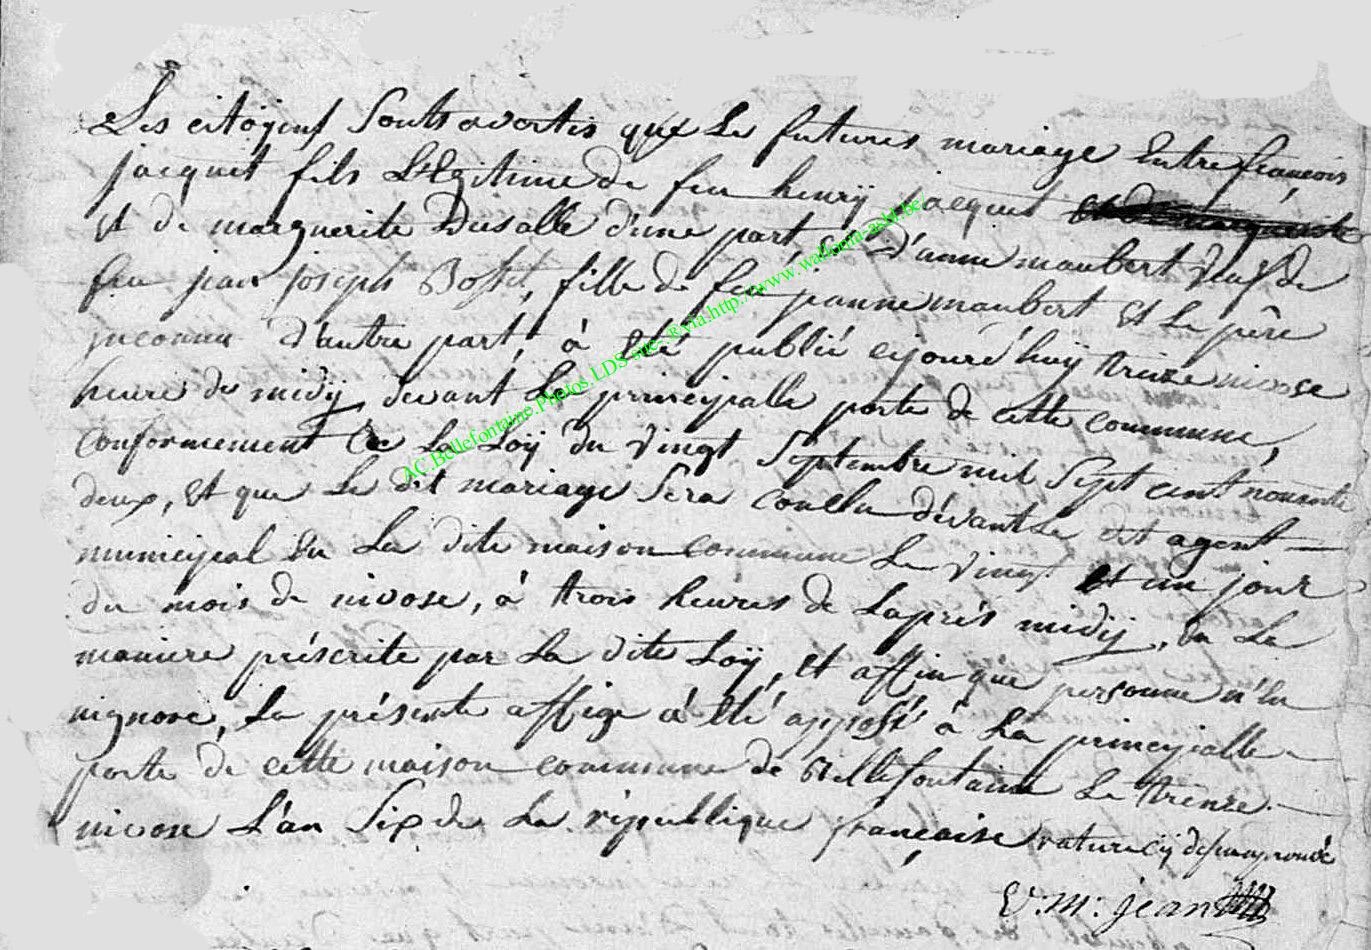 Les citoÿens sonts avertis que le futures mariage Entre françois
jacquet fils Légitime de feu henrÿ jacquet
et de marguerite Dusalle d'une part, et D'anne maubert veuf de
feu jean joseph Bosset, fille de feu jeanne maubert et le père
jnconnu d'autre part, à Eté publié cejourd'huÿ treize nivose
heure de midÿ devant La principalle porte de cette commune,
conformement a La Loÿ du vingt Septembre mil Sept cent nonante
deux, et que le dit mariage Sera conclu dévant le dit agent
municipal En La dite maison commune Le vingt et un jour
du mois de nivose, à trois heures de Laprés midÿ, En La
maniere préscrite par La dite Loÿ, et affin que personne n'En
nignore, La présente affige a été apposé à La principalle
porte de cette maison commune de Bellefontaine Le treize
nivose L'an Six de La république françoise rature cÿ desus aprouvée
V: M: jean
AC.Bellefontaine.Photos.LDS site: ®via.http://www.wallonia-asbl.be